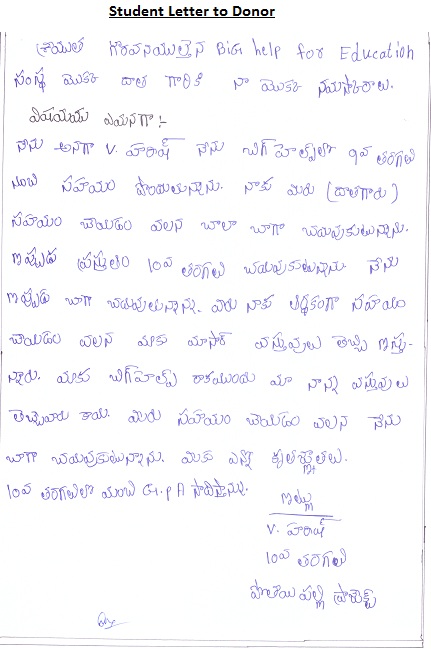 Student Letter to Donor
శ్రీయుత గౌరవనీయులైన BiG help for Education
సంస్థ యొక్క దాత గారికి నా యొక్క నమస్కారాలు.
విషయము ఏమనగా :-
నేను అనగా V. హరీష్ నేను బిగ్ హెల్ప్‌లో 9వ తరగతి
నుంచి సహాయం పొందుతున్నాను. నాకు మీరు (దాతగారు)
సహాయం చేయడం వలన చాలా బాగా చదువుకుంటున్నాను.
ఇప్పుడు ప్రస్తుతం 10వ తరగతి చదువుకుంటున్నాను నేను
ఇప్పుడు బాగా చదువుతున్నాను. మీరు నాకు ఆర్థికంగా సహాయం
చేయడం వలన మాకు మాసార్ వస్తువులు తెచ్చి ఇస్తు-
న్నారు. మాకు బిగ్‌హెల్ప్ రాకముందు మా నాన్న వస్తువులు
తెచ్చేవారు కాదు. మీరు సహాయం చేయడం వలన నేను
బాగా చదువుకుంటున్నాను. మీకు ఎన్నో కృతజ్ఞతలు.
10వ తరగతిలో మంచి G.P A సాధిస్తాను.
ఇట్లు
V. హరీష్
10వ తరగతి
పల్లి ప్రాజెక్ట్